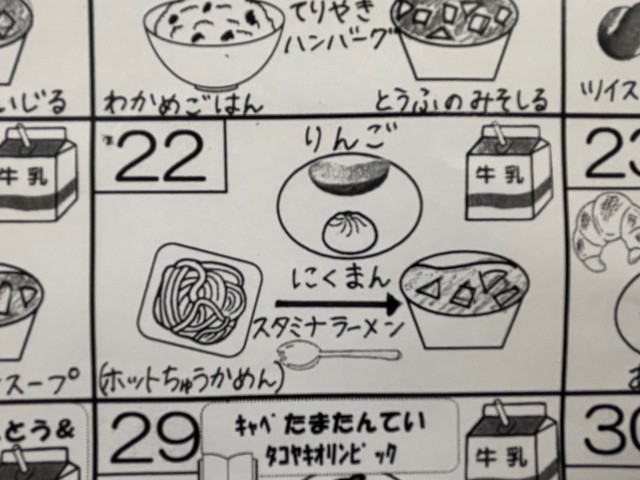 てりやき
ハンバーグ
いじる
わかめごはん
とうふのみそしる
ツイス
牛乳
22
りんご
牛乳
23
にくまん
スタミナラーメン
スープ
(ホットちゅうかめん)
とう&
29
キャベたまたんてい
タコヤキオリンピック
牛乳
30